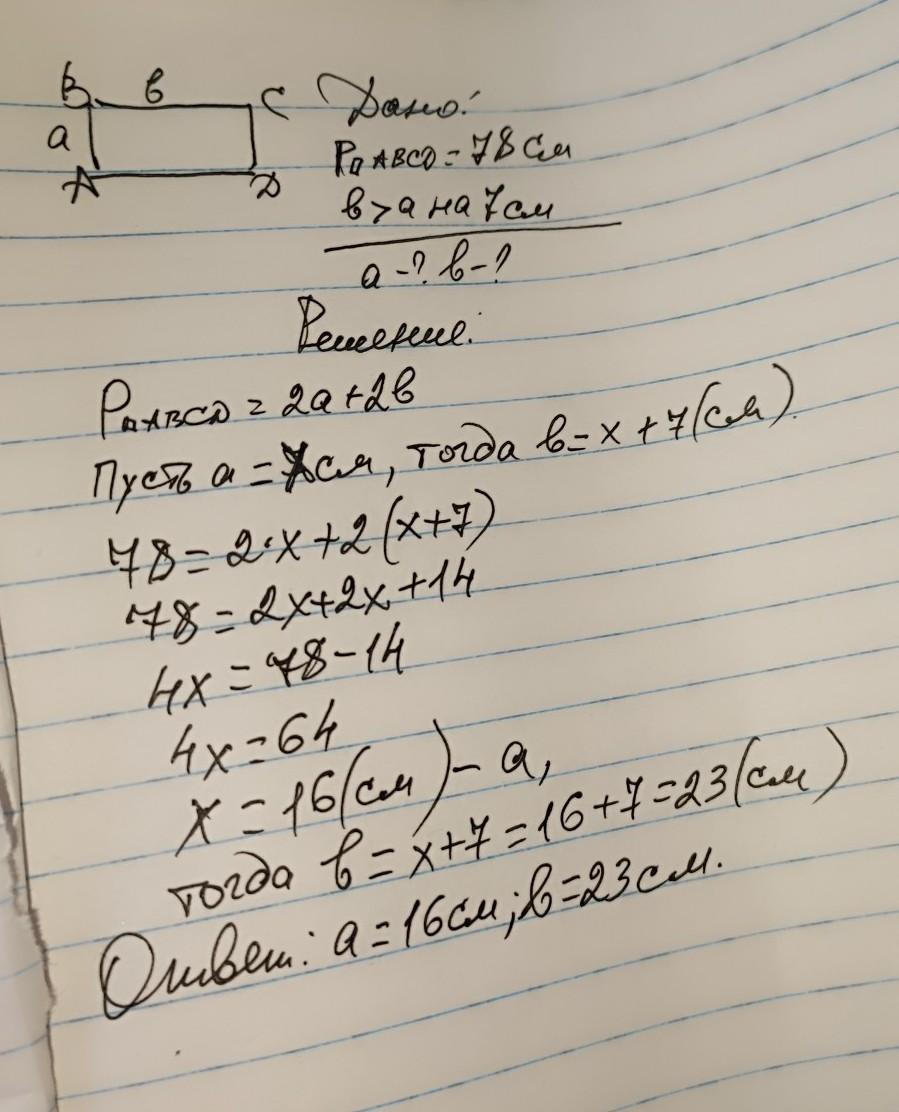 B в C
a
A D
Дано:
P▭ABCD = 78 см
в > a на 7 см
a - ? в - ?
Решение:
P▭ABCD = 2a + 2в
Пусть a = x см, тогда в = x + 7 (см)
78 = 2·x + 2(x+7)
78 = 2x + 2x + 14
4x = 78 - 14
4x = 64
x = 16 (см) - a,
тогда в = x + 7 = 16 + 7 = 23 (см)
Ответ: a = 16 см; в = 23 см.